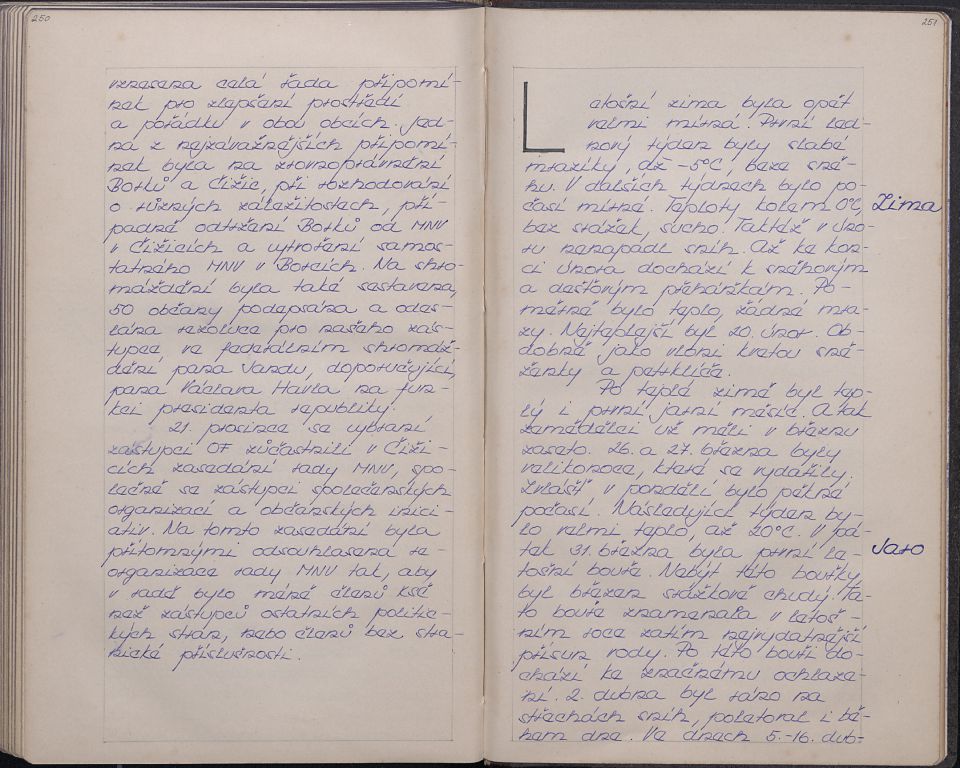 250
vznesena celá řada připomí-
nek pro zlepšení prostředí
a pořádku v obou obcích. Jed-
na z nejzávažnějších připomí-
nek byla na zrovnoprávnění
Borků a Čižic, při rozhodování
o různých záležitostech, pří-
padné odtržení Borků od MNV
v Čižicích a vytvoření samos-
tatného MNV v Borcích. Na shro-
máždění byla také sestavena,
50 občany podepsána a odes-
lána rezoluce pro našeho zás-
tupce ve federálním shromáž-
dění pana Vandu, doporučující,
pana Václava Havla na fun-
kci presidenta republiky.
21. prosince se vybraní
zástupci OF zúčastnili v Čiži-
cích zasedání rady MNV, spo-
lečně se zástupci společenských
organizací a občanských inici-
ativ. Na tomto zasedání byla
přítomnými odsouhlasena re-
organizace rady MNV tak, aby
v radě bylo méně členů KSČ
než zástupců ostatních politic-
kých stran, nebo členů bez stra-
nické příslušnosti.
251
Letošní zima byla opět
velmi mírná. První led-
nový týden byly slabé
mrazíky, až -5°C, beze sně-
hu. V dalších týdnech bylo po-
časí mírné. Teploty kolem 0°C,
Zima
bez srážek, sucho. Taktéž v úno-
ru nenapadl sníh. Až ke kon-
ci února dochází k sněhovým
a dešťovým přeháňkám. Po-
měrně bylo teplo, žádné mra-
zy. Nejteplejší byl 20. únor. Ob-
dobně jako vloni kvetou sně-
ženky a petrklíče.
Po teplé zimě byl tep-
lý i první jarní měsíc. A tak
zemědělci už měli v březnu
zaseto. 26. a 27. března byly
velikonoce, které se vydařily.
Zvlášť, v pondělí bylo pěkné
počasí. Následující týden by-
lo velmi teplo, až 20°C. V pá-
tek 31. března byla první le-
Jaro
tošní bouře. Nebýt této bouřky,
byl březen srážkově chudý. Ta-
to bouře znamenala v letoš-
ním roce zatím nejvydatnější
přísun vody. Po této bouři do-
chází ke značnému ochlaze-
ní. 2. dubna byl ráno na
střechách sníh, poletoval i bě-
hem dne. Ve dnech 5.-16. dub-